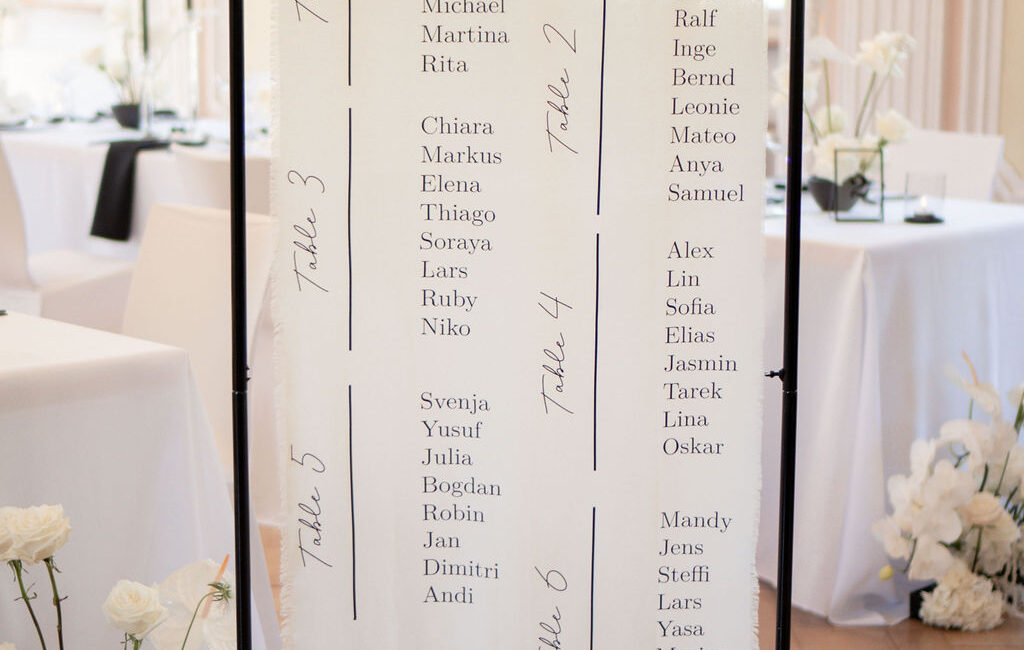 Michael
Martina
Rita
Table 2
Ralf
Inge
Bernd
Leonie
Mateo
Anya
Samuel
Table 3
Chiara
Markus
Elena
Thiago
Soraya
Lars
Ruby
Niko
Table 4
Alex
Lin
Sofia
Elias
Jasmin
Tarek
Lina
Oskar
Table 5
Svenja
Yusuf
Julia
Bogdan
Robin
Jan
Dimitri
Andi
Table 6
Mandy
Jens
Steffi
Lars
Yasa